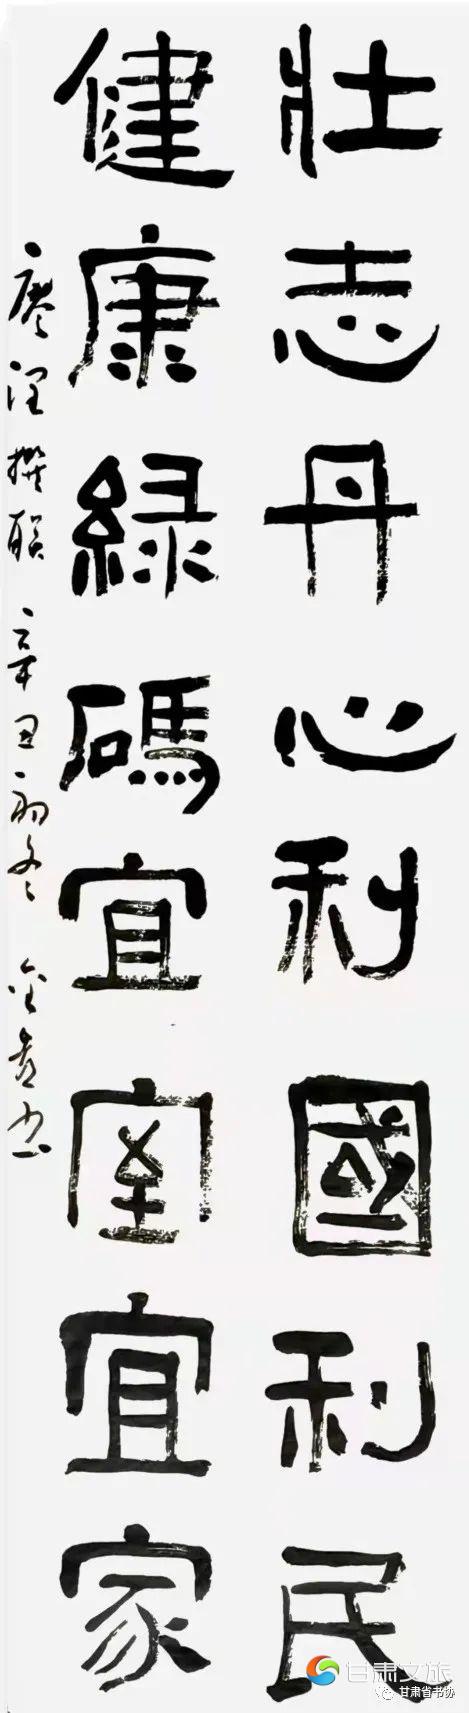 壯志丹心利國利民
健康綠碼宜室宜家
撰联 辛丑初冬 金贵书
甘肃文旅
甘肃省书协